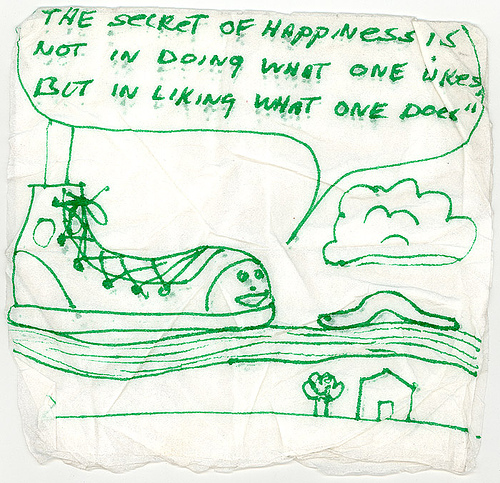 THE SECRET OF HAPPINESS IS
NOT IN DOING WHAT ONE LIKES,
BUT IN LIKING WHAT ONE DOES"